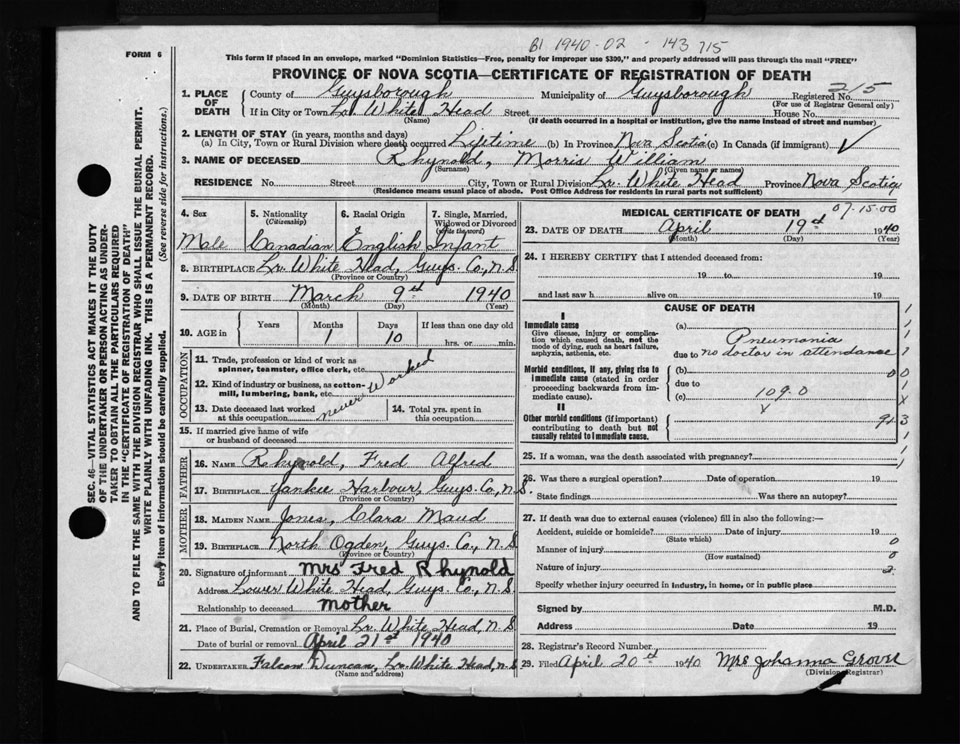 B1 1940-02 - 143 715
FORM 6
This form if placed in an envelope, marked "Dominion Statistics—Free, penalty for improper use $300," and properly addressed will pass through the mail "FREE"
PROVINCE OF NOVA SCOTIA—CERTIFICATE OF REGISTRATION OF DEATH
1. PLACE OF DEATH
County of Guysborough Municipality of Guysborough Registered No. 215
(For use of Registrar General only)
If in City or Town Lr. White Head Street House No.
(Name) (If death occurred in a hospital or institution, give the name instead of street and number)
2. LENGTH OF STAY (in years, months and days)
(a) In City, Town or Rural Division where death occurred Lifetime (b) In Province Nova Scotia (c) In Canada (if immigrant) ✓
3. NAME OF DECEASED Rhynold, Morris William
(Surname) (Given name or names)
RESIDENCE No. Street City, Town or Rural Division Lr. White Head Province Nova Scotia
(Residence means usual place of abode. Post Office Address for residents in rural parts not sufficient)
4. Sex
Male
5. Nationality
(Citizenship)
Canadian
6. Racial Origin
English
7. Single, Married, Widowed or Divorced
(Write the word)
Infant
8. BIRTHPLACE Lr. White Head, Guys. Co, N.S
(Province or Country)
9. DATE OF BIRTH March 9th 1940
(Month) (Day) (Year)
10. AGE in
Years Months Days If less than one day old
1 10 hrs. or min.
OCCUPATION
11. Trade, profession or kind of work as spinner, teamster, office clerk, etc.
12. Kind of industry or business, as cotton-mill, lumbering, bank, etc.
never Worked
13. Date deceased last worked at this occupation
14. Total yrs. spent in this occupation
15. If married give name of wife or husband of deceased
FATHER
16. NAME Rhynold, Fred Alfred
17. BIRTHPLACE Yankee Harbour, Guys. Co, N.S.
(Province or Country)
MOTHER
18. MAIDEN NAME Jones, Clara Maud
19. BIRTHPLACE North Ogden, Guys. Co., N.S
(Province or Country)
20. Signature of informant Mrs Fred Rhynold
Address Lower White Head, Guys. Co., N.S
Relationship to deceased mother
21. Place of Burial, Cremation or Removal Lr. White Head, N.S
Date of burial or removal April 21st 1940
22. UNDERTAKER Falcon Duncan, Lr. White Head, N.S
(Name and address)
MEDICAL CERTIFICATE OF DEATH 07-15-00
23. DATE OF DEATH April 19th 1940
(Month) (Day) (Year)
24. I HEREBY CERTIFY that I attended deceased from:
19 to 19
and last saw h alive on 19
CAUSE OF DEATH
I
Immediate cause
Give disease, injury or complication which caused death, not the mode of dying, such as heart failure, asphyxia, asthenia, etc.
(a) Pneumonia
due to no doctor in attendance
Morbid conditions, if any, giving rise to immediate cause (stated in order proceeding backwards from immediate cause).
(b)
due to
(c) 109.0
X
II
Other morbid conditions (if important) contributing to death but not causally related to immediate cause.
25. If a woman, was the death associated with pregnancy?
26. Was there a surgical operation? Date of operation 19
State findings Was there an autopsy?
27. If death was due to external causes (violence) fill in also the following:—
Accident, suicide or homicide? Date of injury 19
(State which)
Manner of injury 0
(How sustained)
Nature of injury 2
Specify whether injury occurred in industry, in home, or in public place
Signed by M.D.
Address Date 19
28. Registrar's Record Number
29. Filed April 20th 1940 Mrs Johanna Grover
(Division Registrar)
SEC. 46—VITAL STATISTICS ACT MAKES IT THE DUTY
OF THE UNDERTAKER OR PERSON ACTING AS UNDER-
TAKER TO OBTAIN ALL THE PARTICULARS REQUIRED
IN THE "CERTIFICATE OF REGISTRATION OF DEATH"
AND TO FILE THE SAME WITH THE DIVISION REGISTRAR WHO SHALL ISSUE THE BURIAL PERMIT.
WRITE PLAINLY WITH UNFADING INK. THIS IS A PERMANENT RECORD.
Every item of information should be carefully supplied. (See reverse side for instructions.)